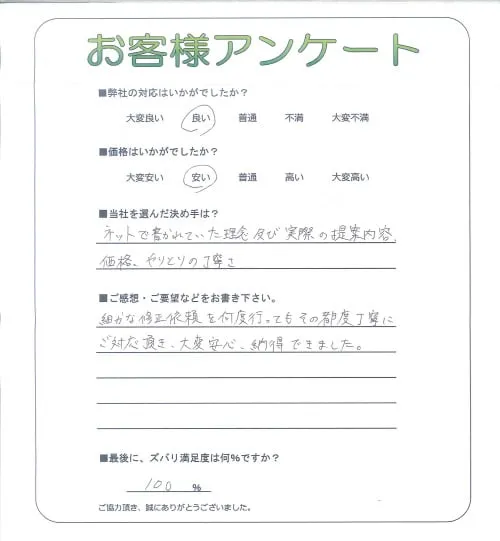 お客様アンケート
■弊社の対応はいかがでしたか？
大変良い 良い 普通 不満 大変不満
■価格はいかがでしたか？
大変安い 安い 普通 高い 大変高い
■当社を選んだ決め手は？
ネットで書かれていた理念及び実際の提案内容、
価格、やりとりの丁寧さ
■ご感想・ご要望などをお書き下さい。
細かな修正依頼を何度行ってもその都度丁寧に
ご対応頂き、大変安心、納得できました。
■最後に、ズバリ満足度は何％ですか？
100 ％
ご協力頂き、誠にありがとうございました。